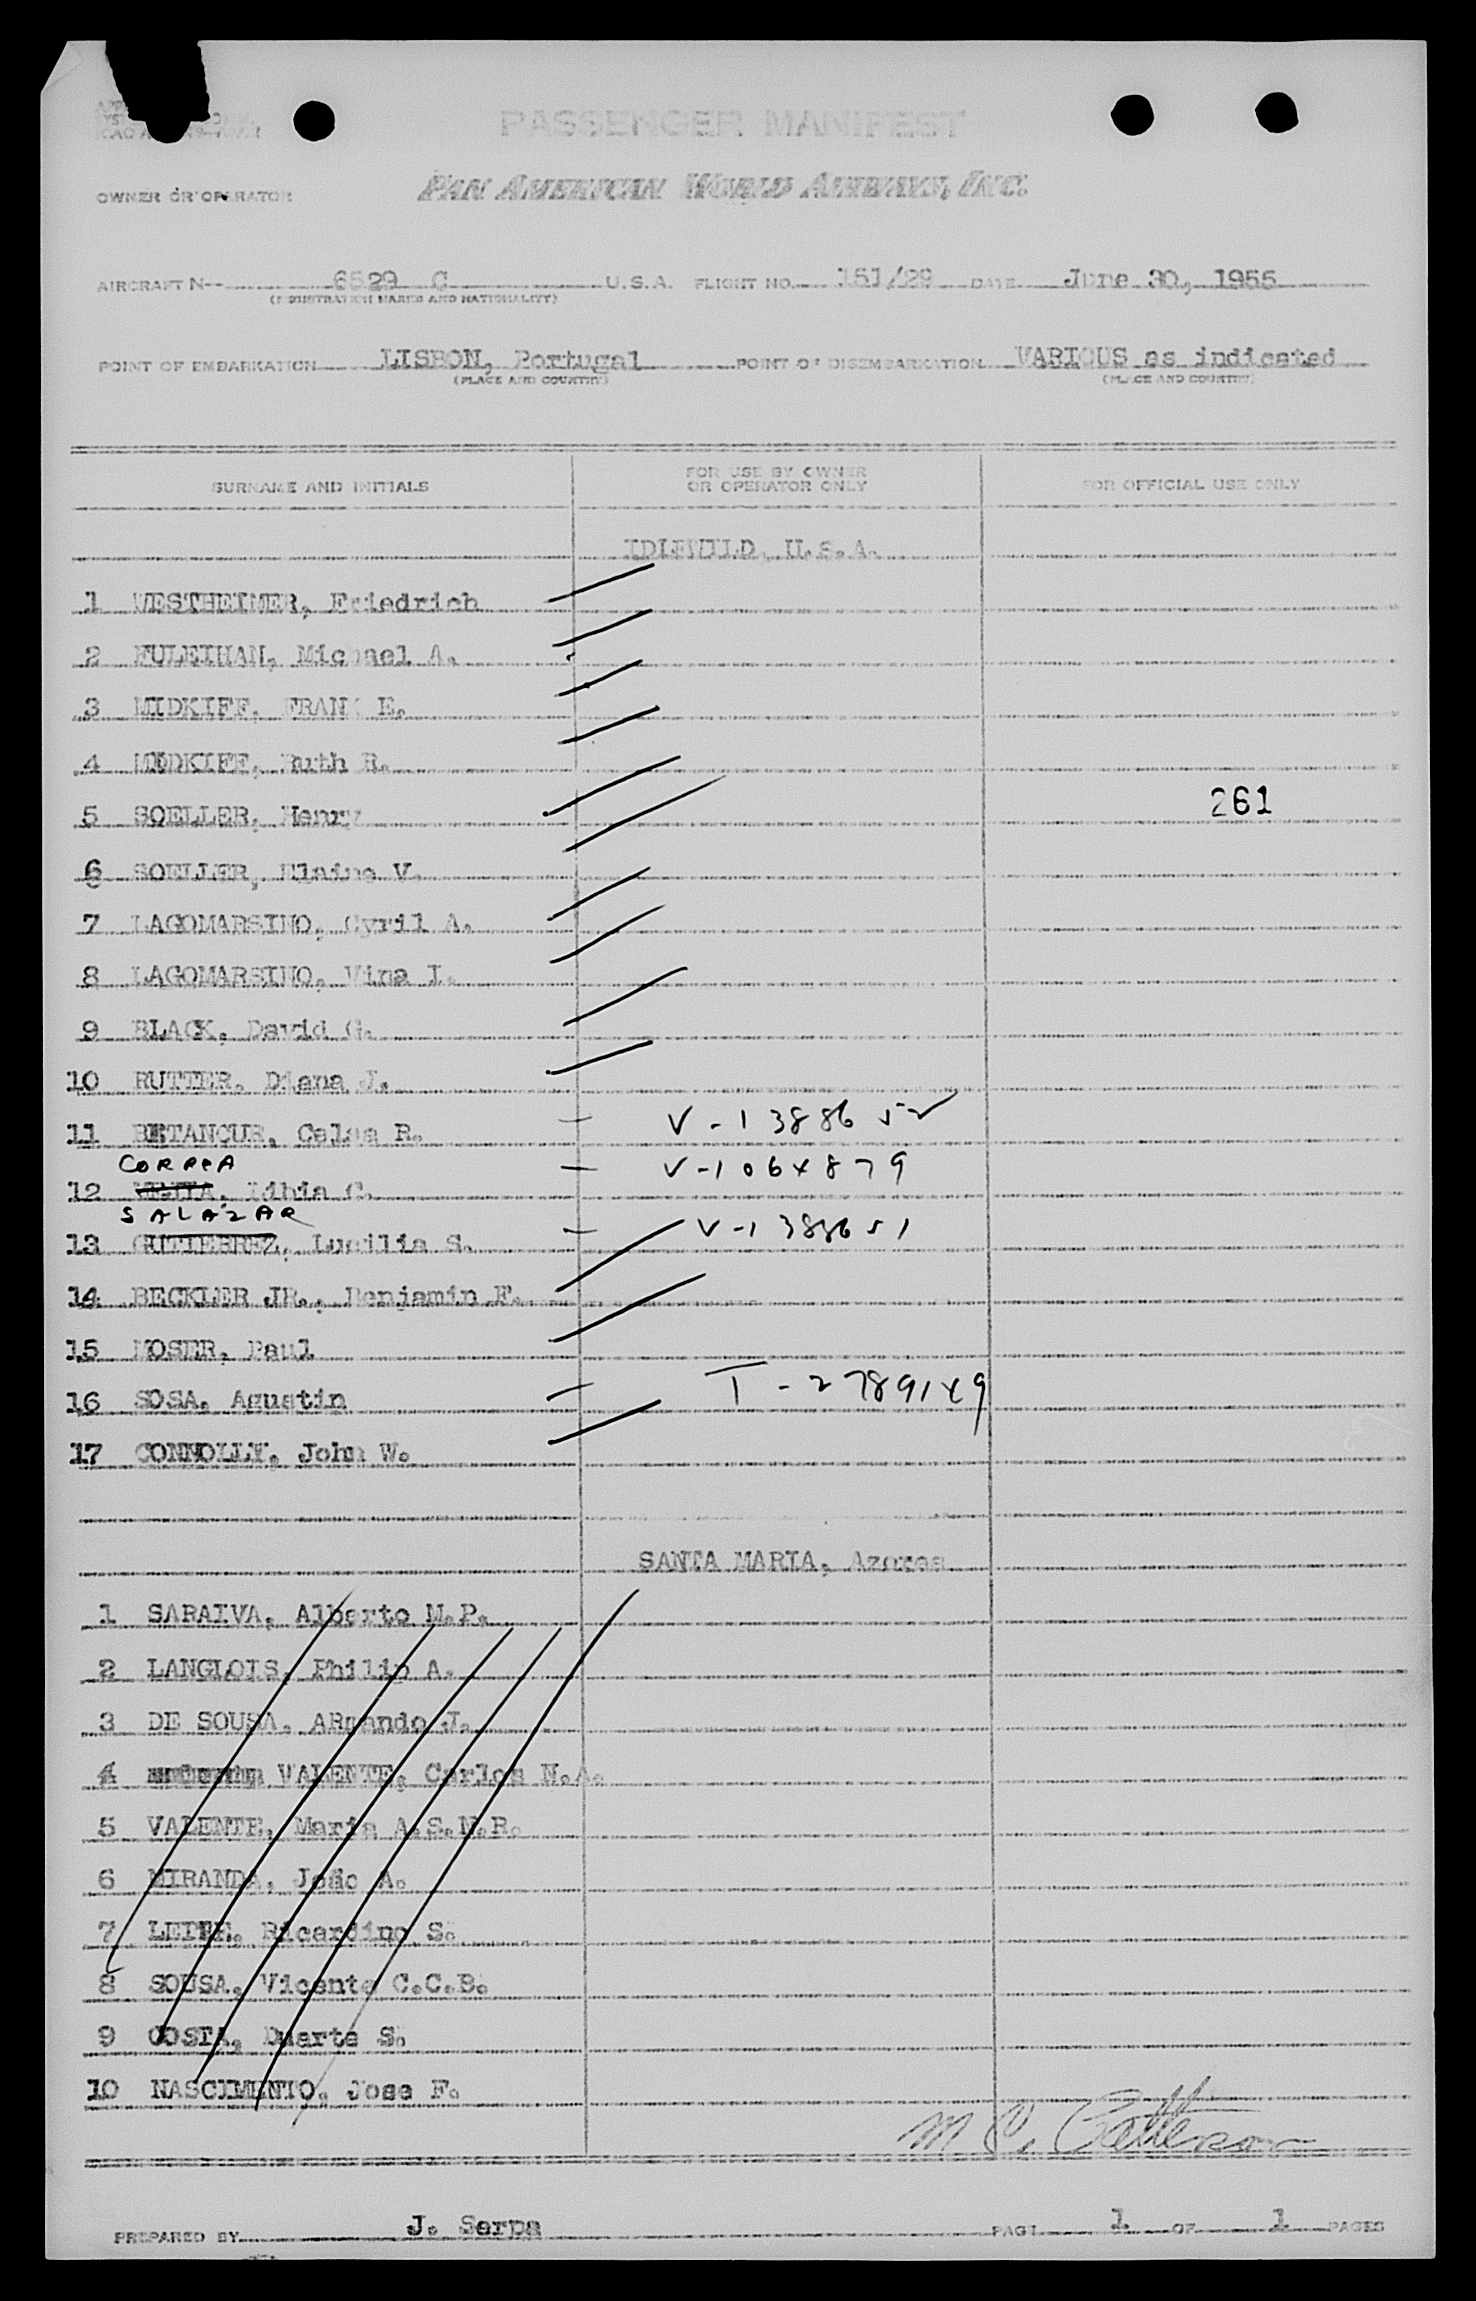 PASSENGER MANIFEST
OWNER OR OPERATOR PAN AMERICAN WORLD AIRWAYS, INC.
AIRCRAFT N-- 6529 C U.S.A. FLIGHT NO. 151/29 DATE June 30, 1955
(REGISTRATION MARKS AND NATIONALITY)
POINT OF EMBARKATION LISBON, Portugal POINT OF DISEMBARKATION VARIOUS as indicated
(PLACE AND COUNTRY) (PLACE AND COUNTRY)
SURNAME AND INITIALS FOR USE BY OWNER OR OPERATOR ONLY FOR OFFICIAL USE ONLY
IDLEWILD, U.S.A.
1 WESTHEIMER, Friedrich
2 FULEIHAN, Michael A.
3 MIDKIFF, FRANK E.
4 MIDKIFF, Ruth R.
5 SOELLER, Henry 261
6 SOELLER, Elaine V.
7 LAGOMARSINO, Cyril A.
8 LAGOMARSINO, Vina I.
9 BLACK, David G.
10 RUTTER, Diana J.
11 BETANCUR, R. V-1388652
CORREA
12 Libia C. V-1064879
SALAZAR
13 GUTIERREZ, Lucilia S. V-1388651
14 BECKLER JR., Benjamin F.
15 MOSER, Paul
16 SOSA, Agustin T-2789149
17 CONNOLLY, John W.
SANTA MARIA, Azores
1 SARAIVA, Alberto M.P.
2 LANGLOIS, Philip A.
3 DE SOUSA, ARmando J.
4 VALENTE, Carlos N.A.
5 VALENTE, Maria A.S.N.R.
6 MIRANDA, João A.
7 Ricardino S.
8 SOUSA, Vicente C.C.B.
9 COSTA, Duarte S.
10 NASCIMENTO, Jose F.
M Patterson
PREPARED BY J. Serpa PAGE 1 OF 1 PAGES